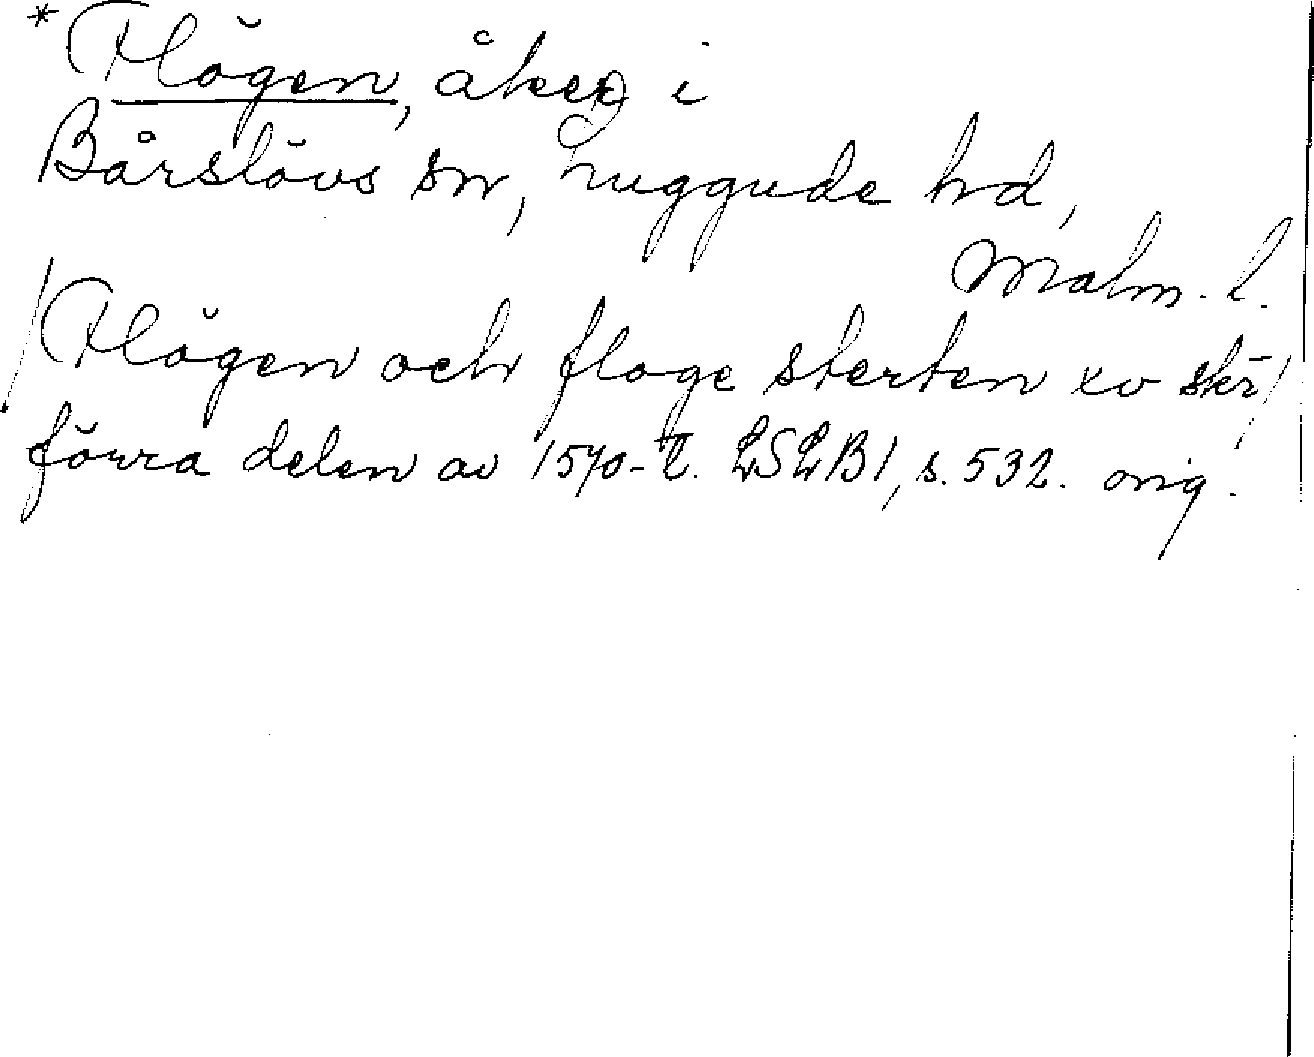 *Plögen, åker i
Bårslövs sn, Luggude hd,
Malm. l.
/Plögen och floge sterten xv skr/
förra delen av 1570-t. LSLB1, s. 532. orig.